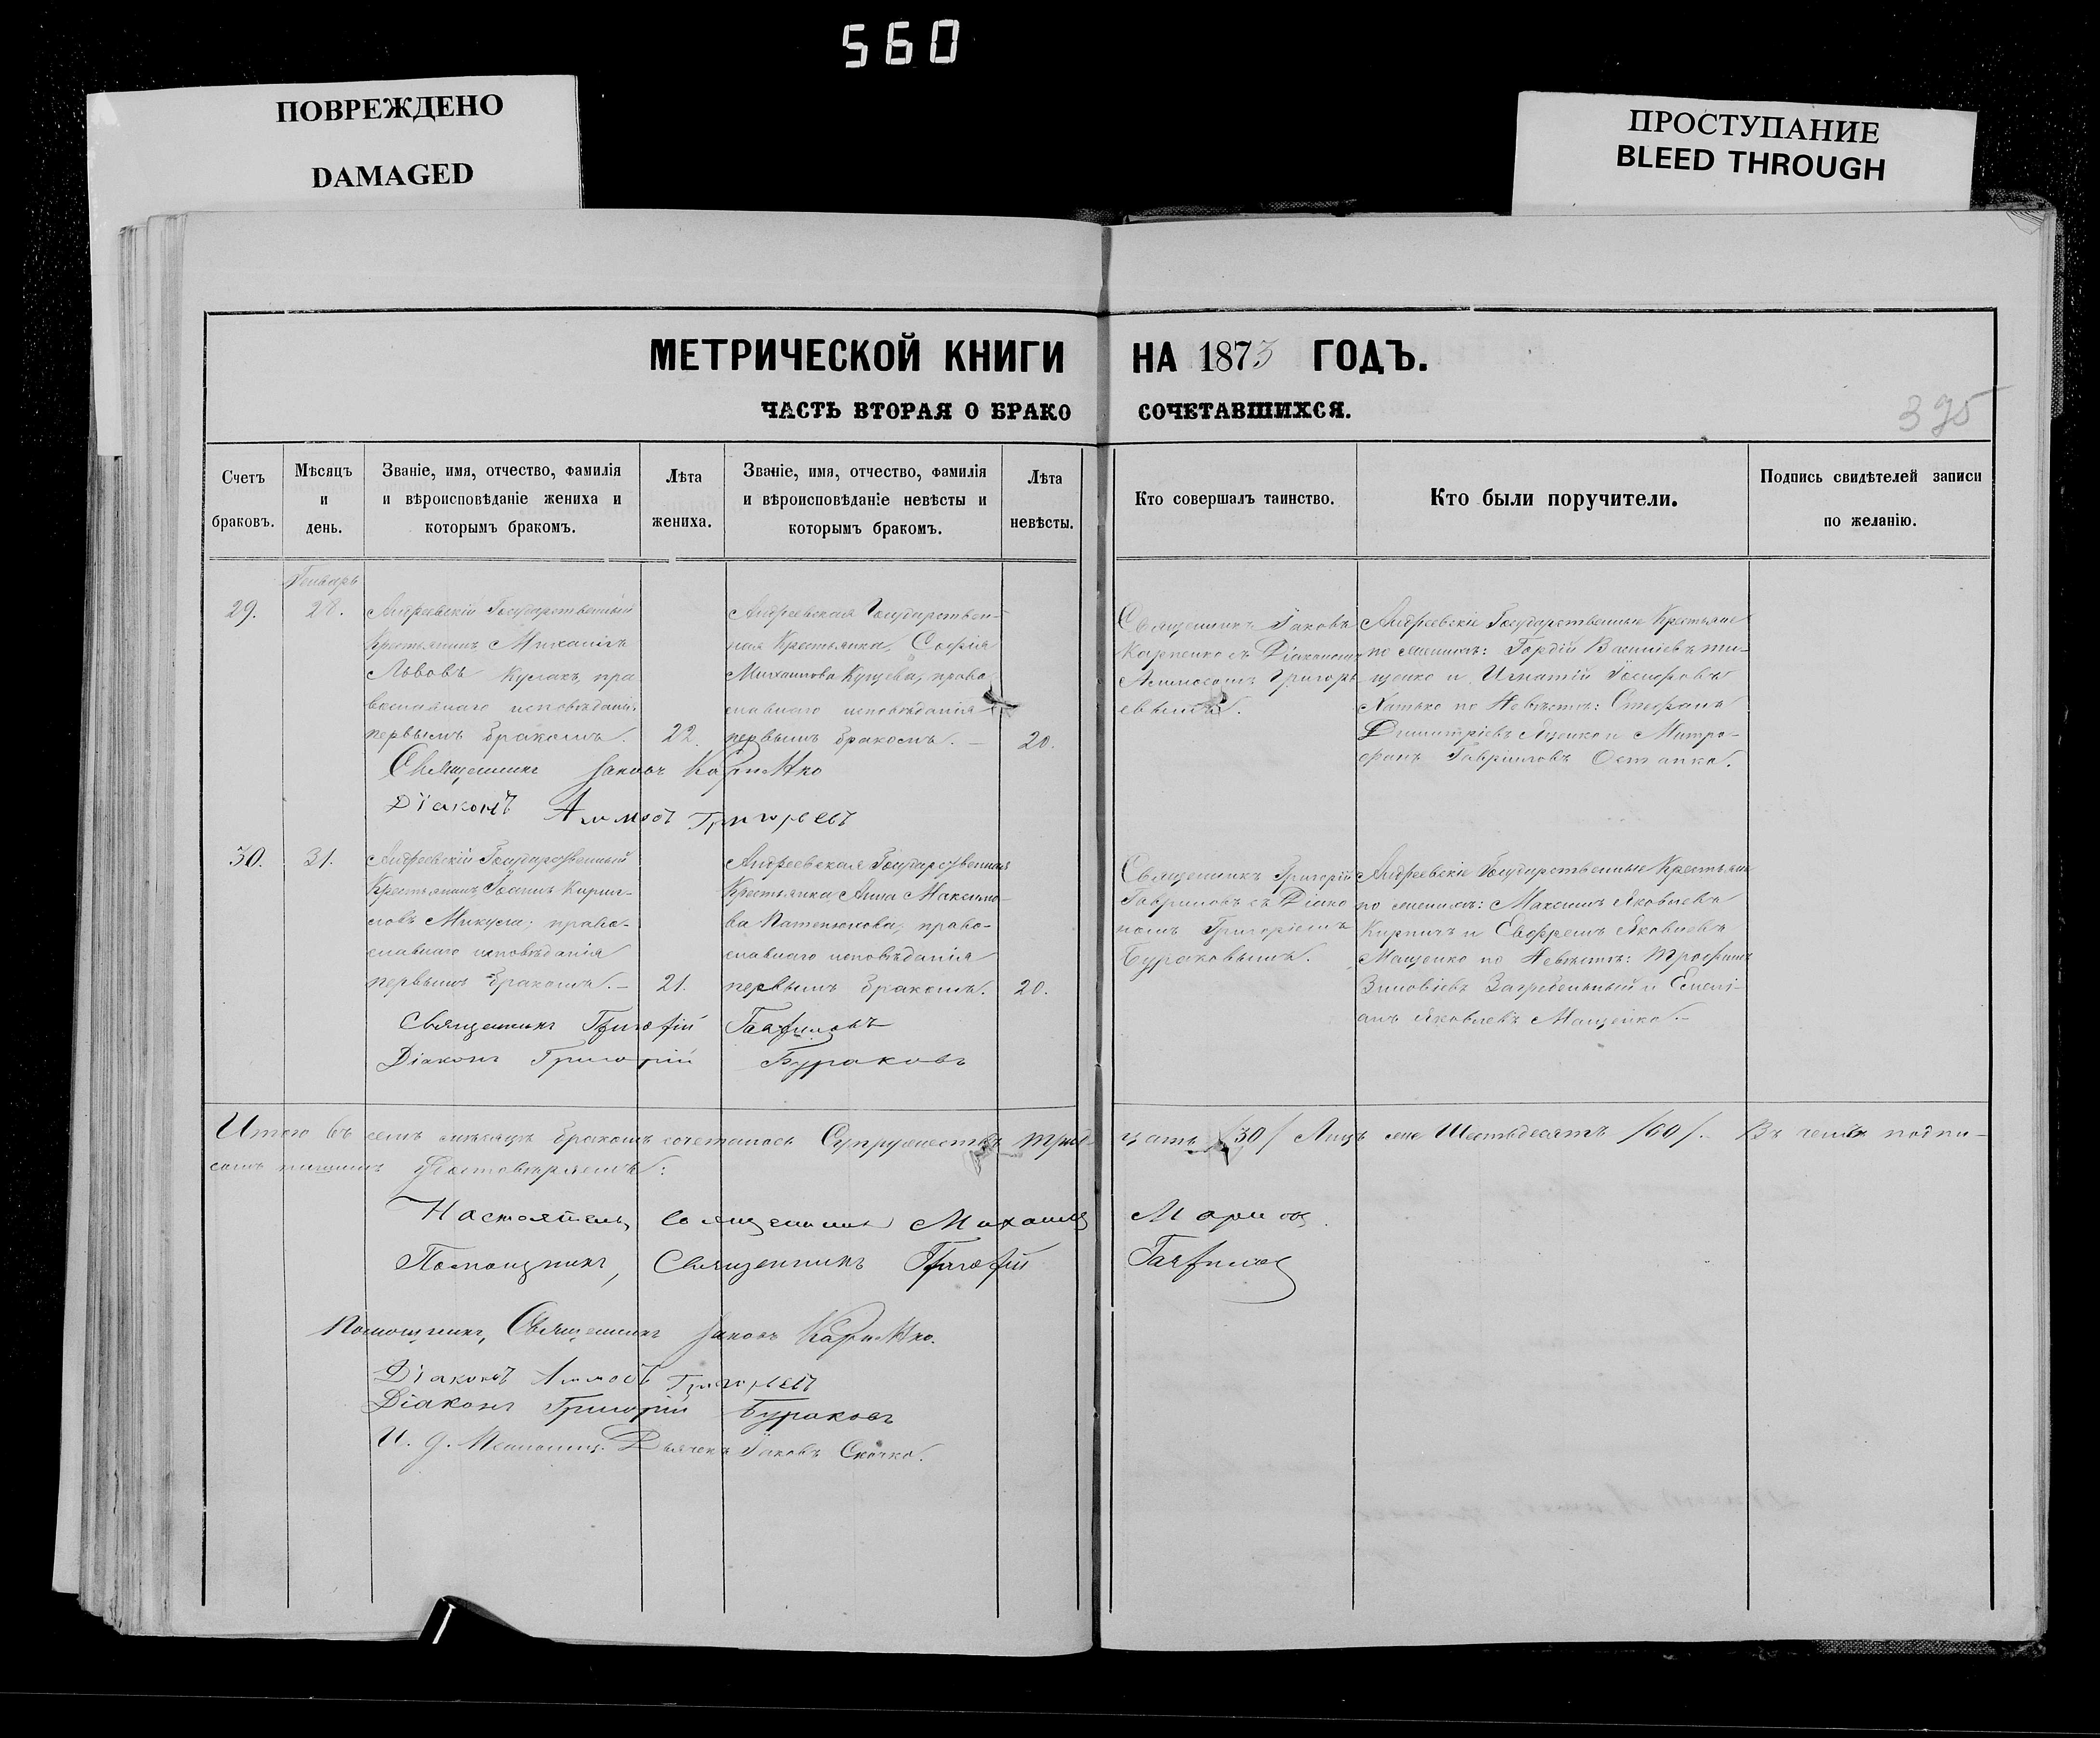 560
ПОВРЕЖДЕНО
DAMAGED
ПРОСТУПАНИЕ
BLEED THROUGH
МЕТРИЧЕСКОЙ КНИГИ НА 1873 ГОДЪ.
ЧАСТЬ ВТОРАЯ О БРАКО СОЧЕТАВШИХСЯ.
395
Счетъ
браковъ.
Мѣсяцъ
и
день.
Званіе, имя, отчество, фамилія
и вѣроисповѣданіе жениха и
которымъ бракомъ.
Лѣта
жениха.
Званіе, имя, отчество, фамилія
и вѣроисповѣданіе невѣсты и
которымъ бракомъ.
Лѣта
невѣсты.
Кто совершалъ таинство.
Кто были поручители.
Подпись свидѣтелей записи
по желанію.
Генварь
29.
28.
Андреевскій Государственный
Крестьянинъ Михаилъ
Львовъ Кулакъ, пра
вославнаго исповѣданія
первымъ бракомъ.
22.
Андреевская Государствен-
ная Крестьянка, Софія
Михаилова Куцева, право
славнаго исповѣданія
первымъ бракомъ. —
20.
Священникъ Іаковъ
Карпенко съ Діакономъ
Аммосомъ Григорь
евымъ.
Андреевскіе Государственные Крестьяне
по женихѣ: Гордій Васильевъ ти-
щенко и Игнатій Іосифовъ
Хатько по Невѣстѣ: Стефанъ
Димитріевъ Яценко и Митро-
фанъ Гавріиловъ Остапко.
Священникъ Іаковъ Карпенко
Діаконъ Аммосъ Григорьевъ
30.
31.
Андреевскій Государственный
Крестьянинъ Іоаннъ Кирил-
ловъ Микула; право-
славнаго исповѣданія
первымъ бракомъ. —
21.
Андреевская Государственная
Крестьянка, Анна Максимо-
ва Пателюкова; право-
славнаго исповѣданія
первымъ бракомъ.
20.
Священникъ Григорій
Гавриловъ съ Діако
номъ Григоріемъ
Бураковымъ.
Андреевскіе Государственные Крестьяне
по женихѣ: Максимъ Яковлевъ
Кирпичъ и Евфремъ Яковлевъ
Мащенко по Невѣстѣ: Трофимъ
Зиновіевъ Загребельный и Емелі-
анъ Яковлевъ Мащенко. —
Священникъ Григорій Гавриловъ
Діаконъ Григорій Бураковъ
Итого въ семъ мѣсяцѣ бракомъ сочеталось Супружествъ трид-
цать /30/ Лицъ же Шестьдесятъ /60/. — Въ чемъ подпи-
сомъ нашимъ Удостовѣряемъ:
Настоятель, священникъ Михаилъ
Помощникъ, Священникъ Григорій Гавриловъ
Помощникъ, Священникъ Іаковъ Карпенко.
Діаконъ Аммосъ Григорьевъ
Діаконъ Григорій Бураковъ
И. д. Псаломщ. Дьячекъ Іаковъ Скочко.